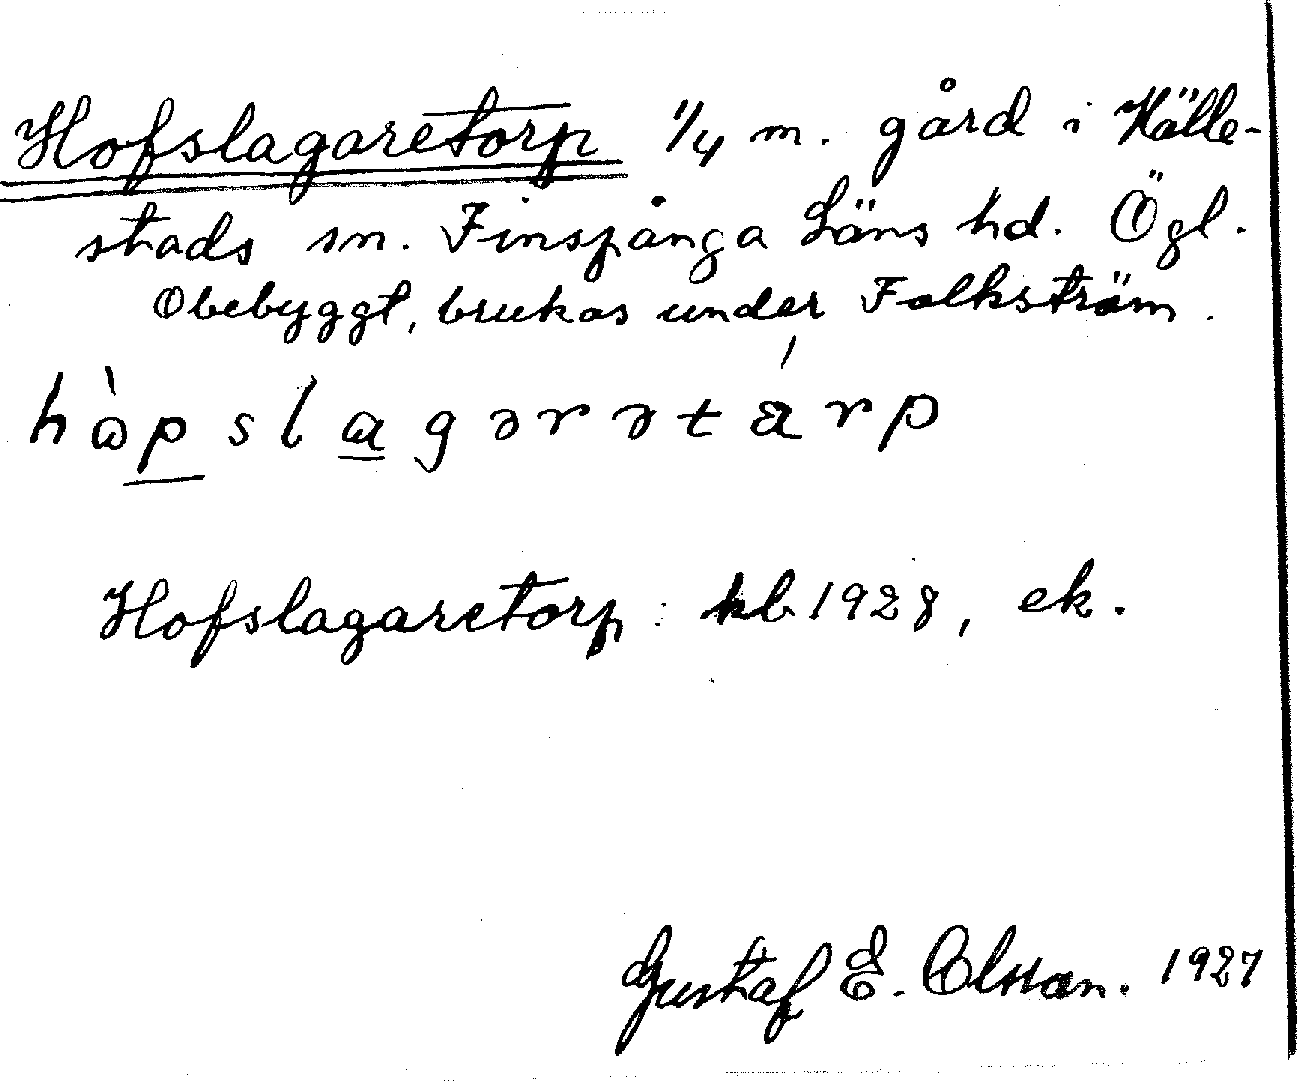 Hofslagaretorp 1/4 m. gård i Hälle-
stads sn. Finspånga Läns hd. Ögl.
Obebyggt, brukas under Folkström.
hòpslagərətárp
Hofslagaretorp : kb 1928, ek.
Gustaf E. Olsson. 1927